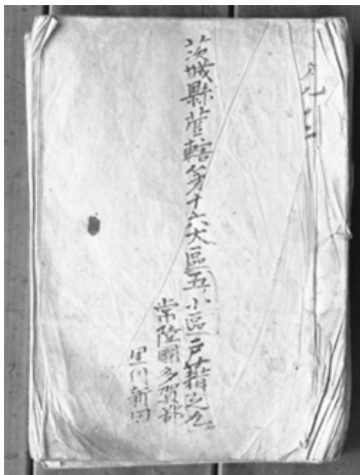 茨城縣管轄第十六大區五小區戸籍之九
常陸國多賀郡
里川新田